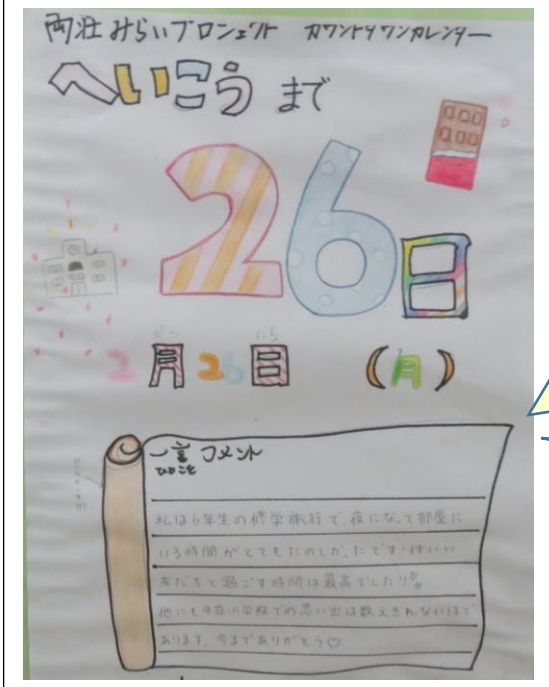 両荘みらいプロジェクト カウントダウンカレンダー
へいこうまで
26日
2月26日 (月)
一言コメント
ひとこと
私は6年生の修学旅行で、夜になって部屋に
いる時間がとてもたのしかったです!仲いい
友だちと過ごす時間は最高でした!!
他にも平荘小学校での思い出は数えきれないほど
あります。今までありがとう♡